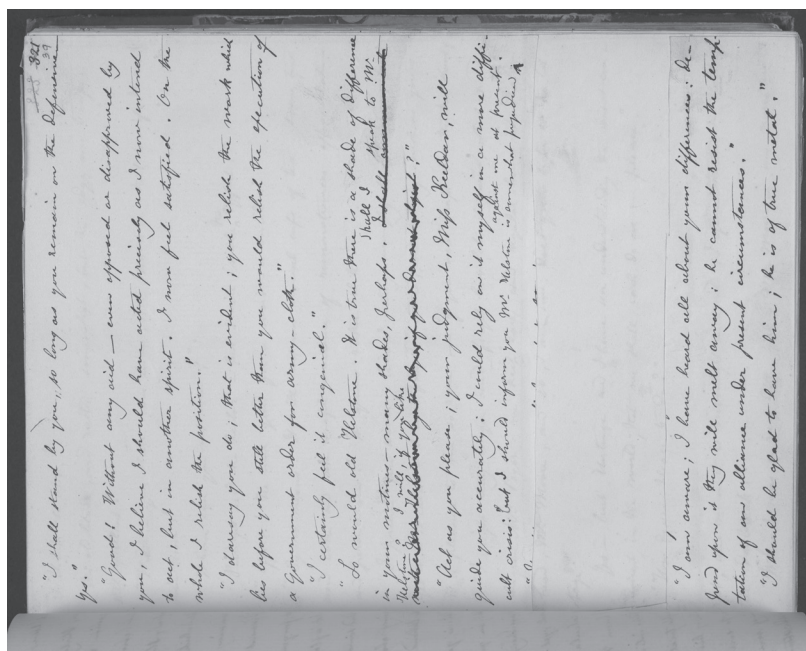 321
39
"I shall stand by you, so long as you remain on the defensive
"Good! Without any aid — even opposed or disapproved by
you, I believe I should have acted precisely as I now intend
to act, but in another spirit. I now feel satisfied. On the
whole I relish the position."
"I daresay you do; that is evident; you relish the work which
lies before you still better than you would relish the execution of
a Government order for army-cloth."
"I certainly feel it congenial."
"So would old Helstone. It is true there is a shade of difference
in your motives — many shades, perhaps. Shall I speak to Mr.
Helstone? I will, if you like
"Act as you please; your judgment, Miss Keeldar, will
guide you accurately: I could rely on it myself in a more diffi-
cult crisis: but I should inform you Mr. Helstone is somewhat prejudiced
against me at present.
"I am aware; I have heard all about your differences: de-
pend upon it they will melt away; he cannot resist the temp-
tation of an alliance under present circumstances."
"I should be glad to have him; he is of true metal."